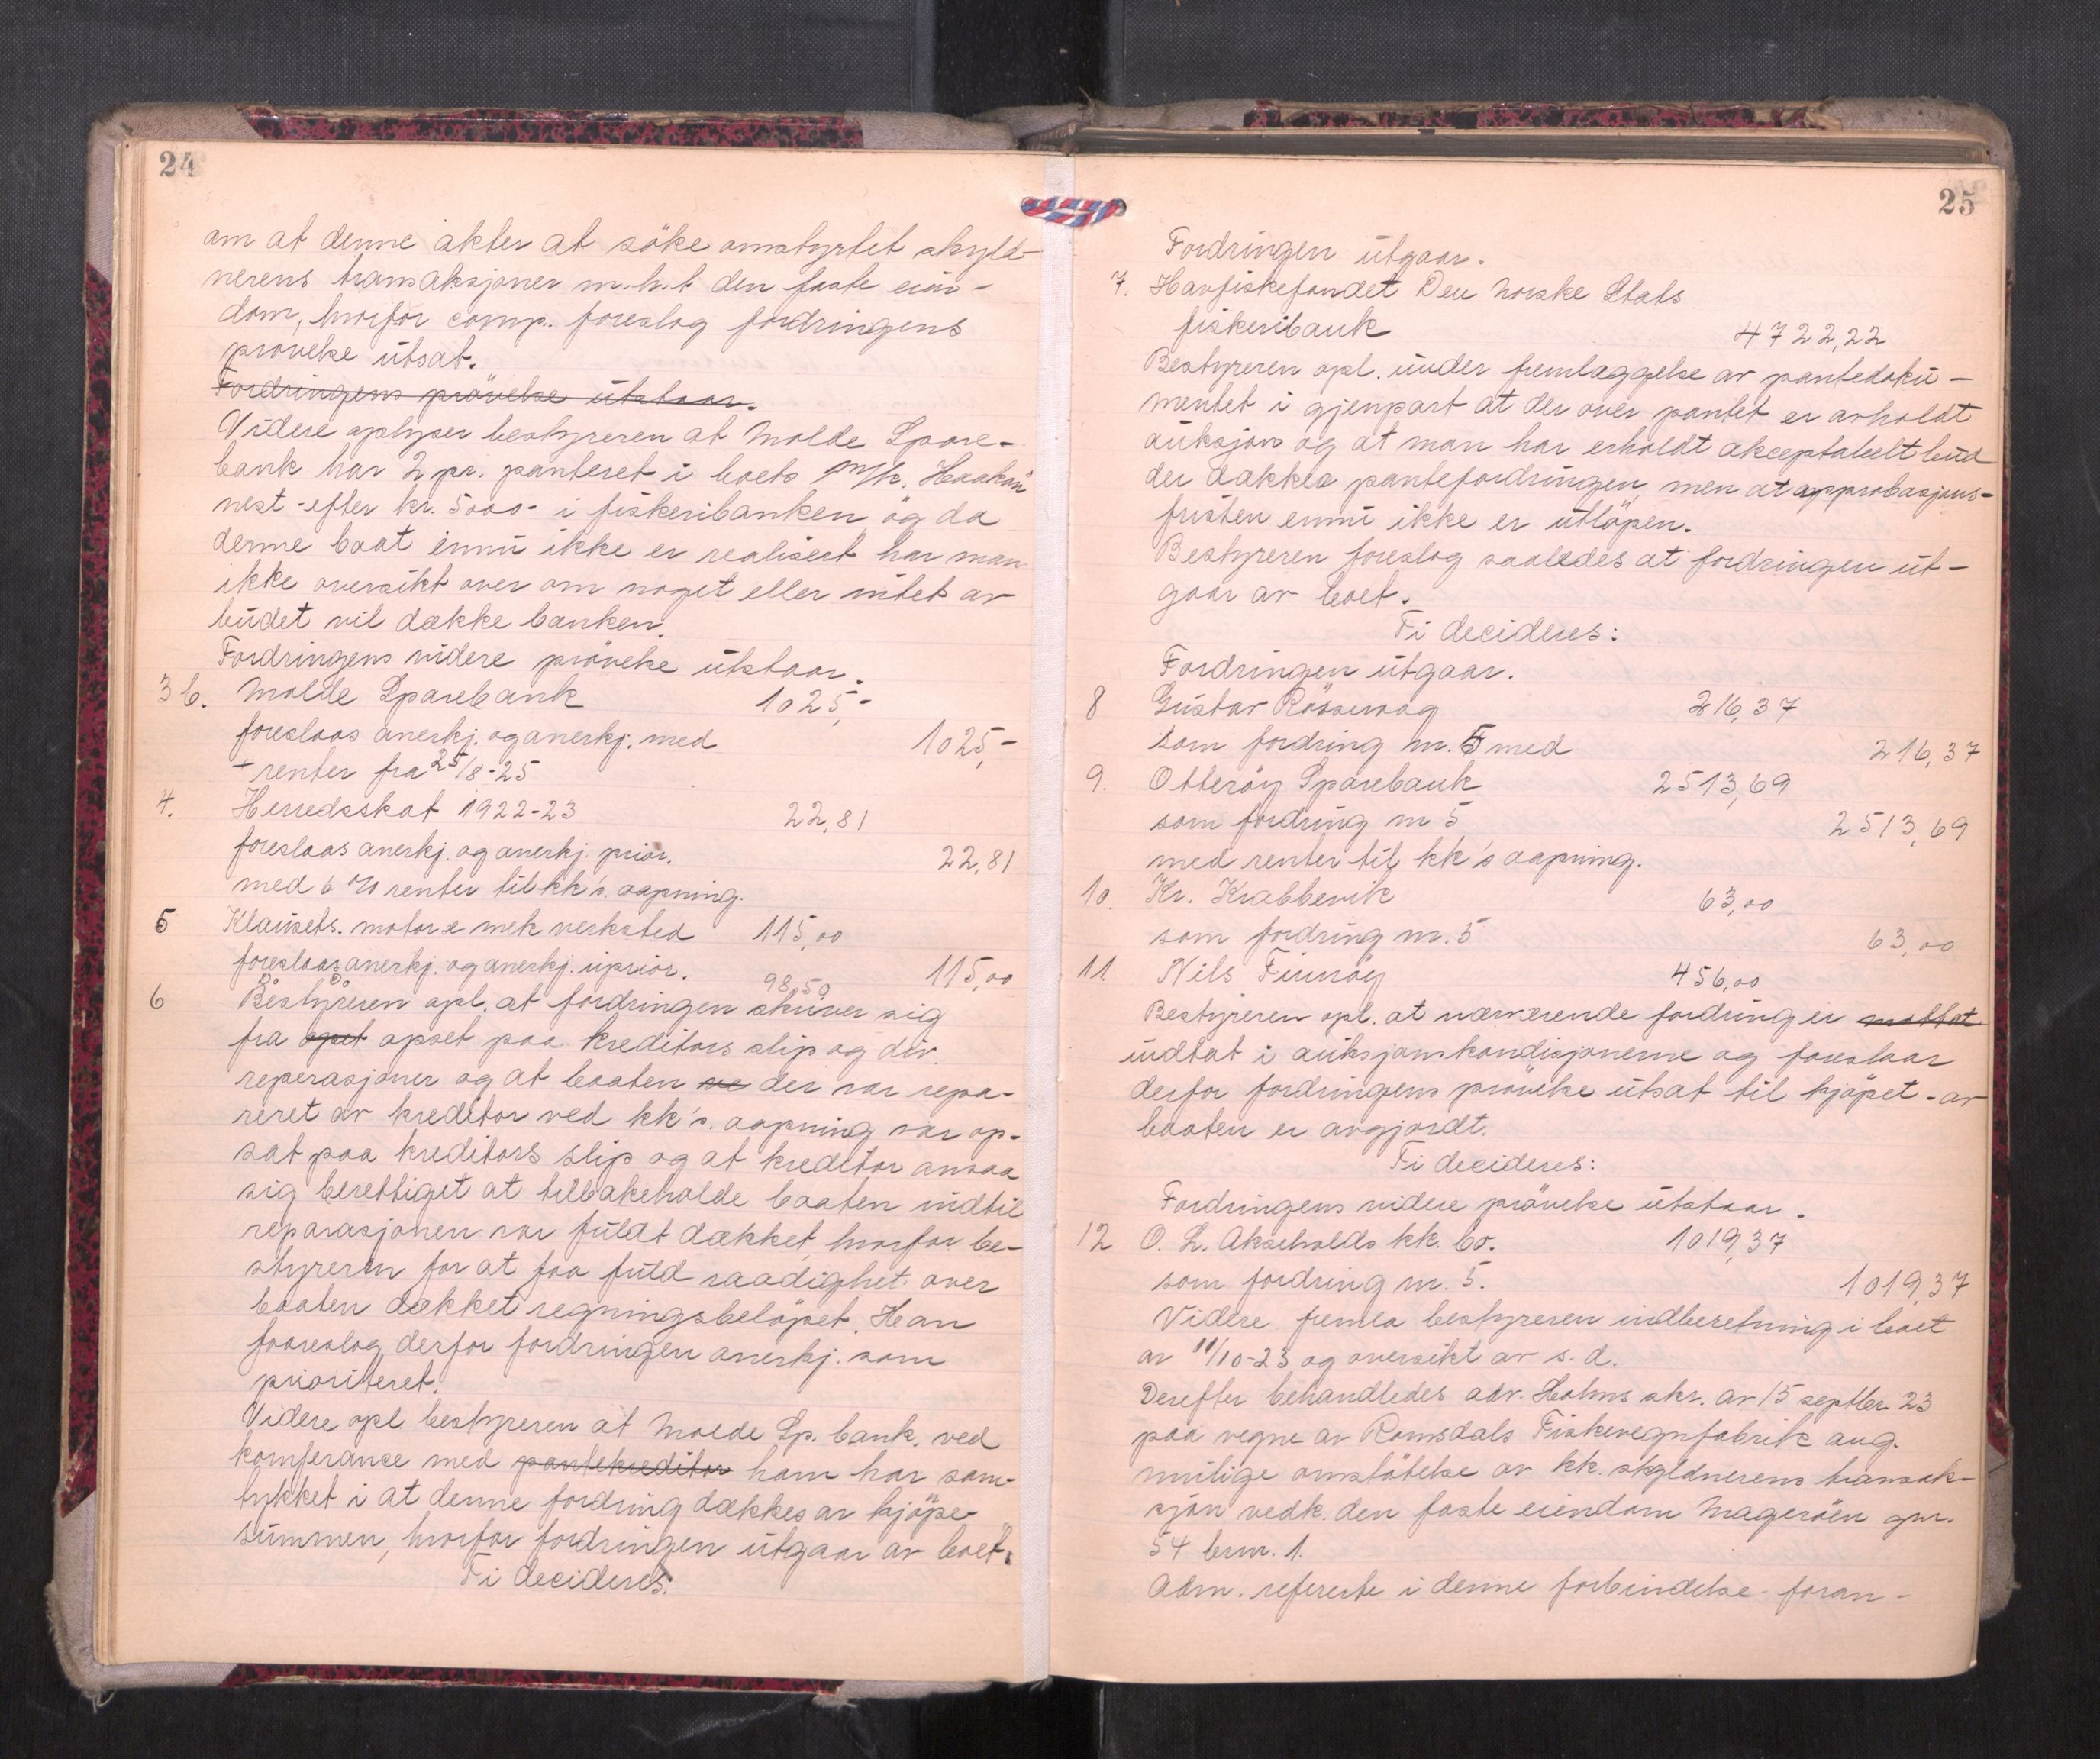 24
om at denne akter at söke omstyrtet skyld-
nerens transaksjoner m.h.t den faste ein-
dom, hvorfor comp. foreslog fordringens
prøvelse utsat.
Fordringens prövelse utstaar.
Videre oplyser bestyreren at Molde Spare-
bank har 2 pr. panteret i boets M/k. Haakon
nest efter kr. 5000- i fiskeribanken og da
denne baat ennu ikke er realisert har man
ikke oversikt over om noget eller intet av
budet vil dække banken.
Fordringens videre prövelse utstaar.
3 b. Molde Sparebank 1025,-
foreslaas anerkj. og anerkj. med 1025,-
+ renter fra 25/8-25
4. Herredsskat 1922-23 22,81
foreslaas anerkj. og anerkj. prior. 22,81
med 6 % renter til kk's. aapning.
5 Klausets. motor & mek verksted 115,00
foreslaas anerkj. og anerkj. uprior. 115,00
98,50
6 Bestyreren opl. at fordringen skriver sig
fra opet opset paa kreditors slip og div.
reperasjoner og at baaten ve der var repa-
reret av kreditor ved kk's. aapning var op-
sat paa kreditors slip og at kreditor ansaa
sig berettiget at tilbakeholde baaten indtil
reparasjonen var fuldt dækket, hvorfor be-
styreren for at faa fuld raadighet over
baaten dækket regningsbelöpet. Han
fooreslog derfor fordringen anerkj. som
prioriteret.
Videre opl bestyreren at Molde Sp. bank. ved
komferance med pantekreditor ham har sam-
tykket i at denne fordring dækkes av kjöpe-
summen, hvorfor fordringen utgaar av boet.
Ti decideres:
25
Fordringen utgaar.
7. Havfiskefondet Den Norske Stats
fiskeribank 4722,22
Bestyreren opl. under fremlæggelse av pantedoku-
mentet i gjenpart at der over pantet er avholdt
auksjon og at man har erholdt akceptabelt bud
der dækker pantefordringen, men at approbasjons-
fristen ennu ikke er utlöpen.
Bestyreren foreslog saaledes at fordringen ut-
gaar av boet.
Ti decideres:
Fordringen utgaar.
8 Gustav Rösservaag 216,37
som fordring nr. 5 med 216,37
9. Otteröy Sparebank 2513,69
som fordring nr 5 2513,69
med renter til kk's aapning.
10. Kr. Krabbevik 63,00
som fordring nr. 5 63,00
11. Nils Finnöy 456,00
Bestyreren opl. at nærværende fordring er mottat
indtat i auksjonskondisjonerne og foreslaar
derfor fordringens prövelse utsat til kjöpet av
baaten er avgjordt.
Ti decideres:
Fordringens videre prövelse utstaar.
12 O. L. Akseholds kk. bo. 1019,37
som fordring nr. 5. 1019,37
Videre fremla bestyreren indberetning i boet
av 11/10-23 og oversikt av s.d.
Derefter behandledes adv. Holms skr. av 15 septbr. 23
paa vegne av Romsdals Fiskevegnfabrik ang.
mulige omstötelse av kk. skyldnerens transak-
sjon vedk. den faste eiendom Mageröen gnr.
54 brnr. 1.
Adm. refererte i denne forbindelse foran-